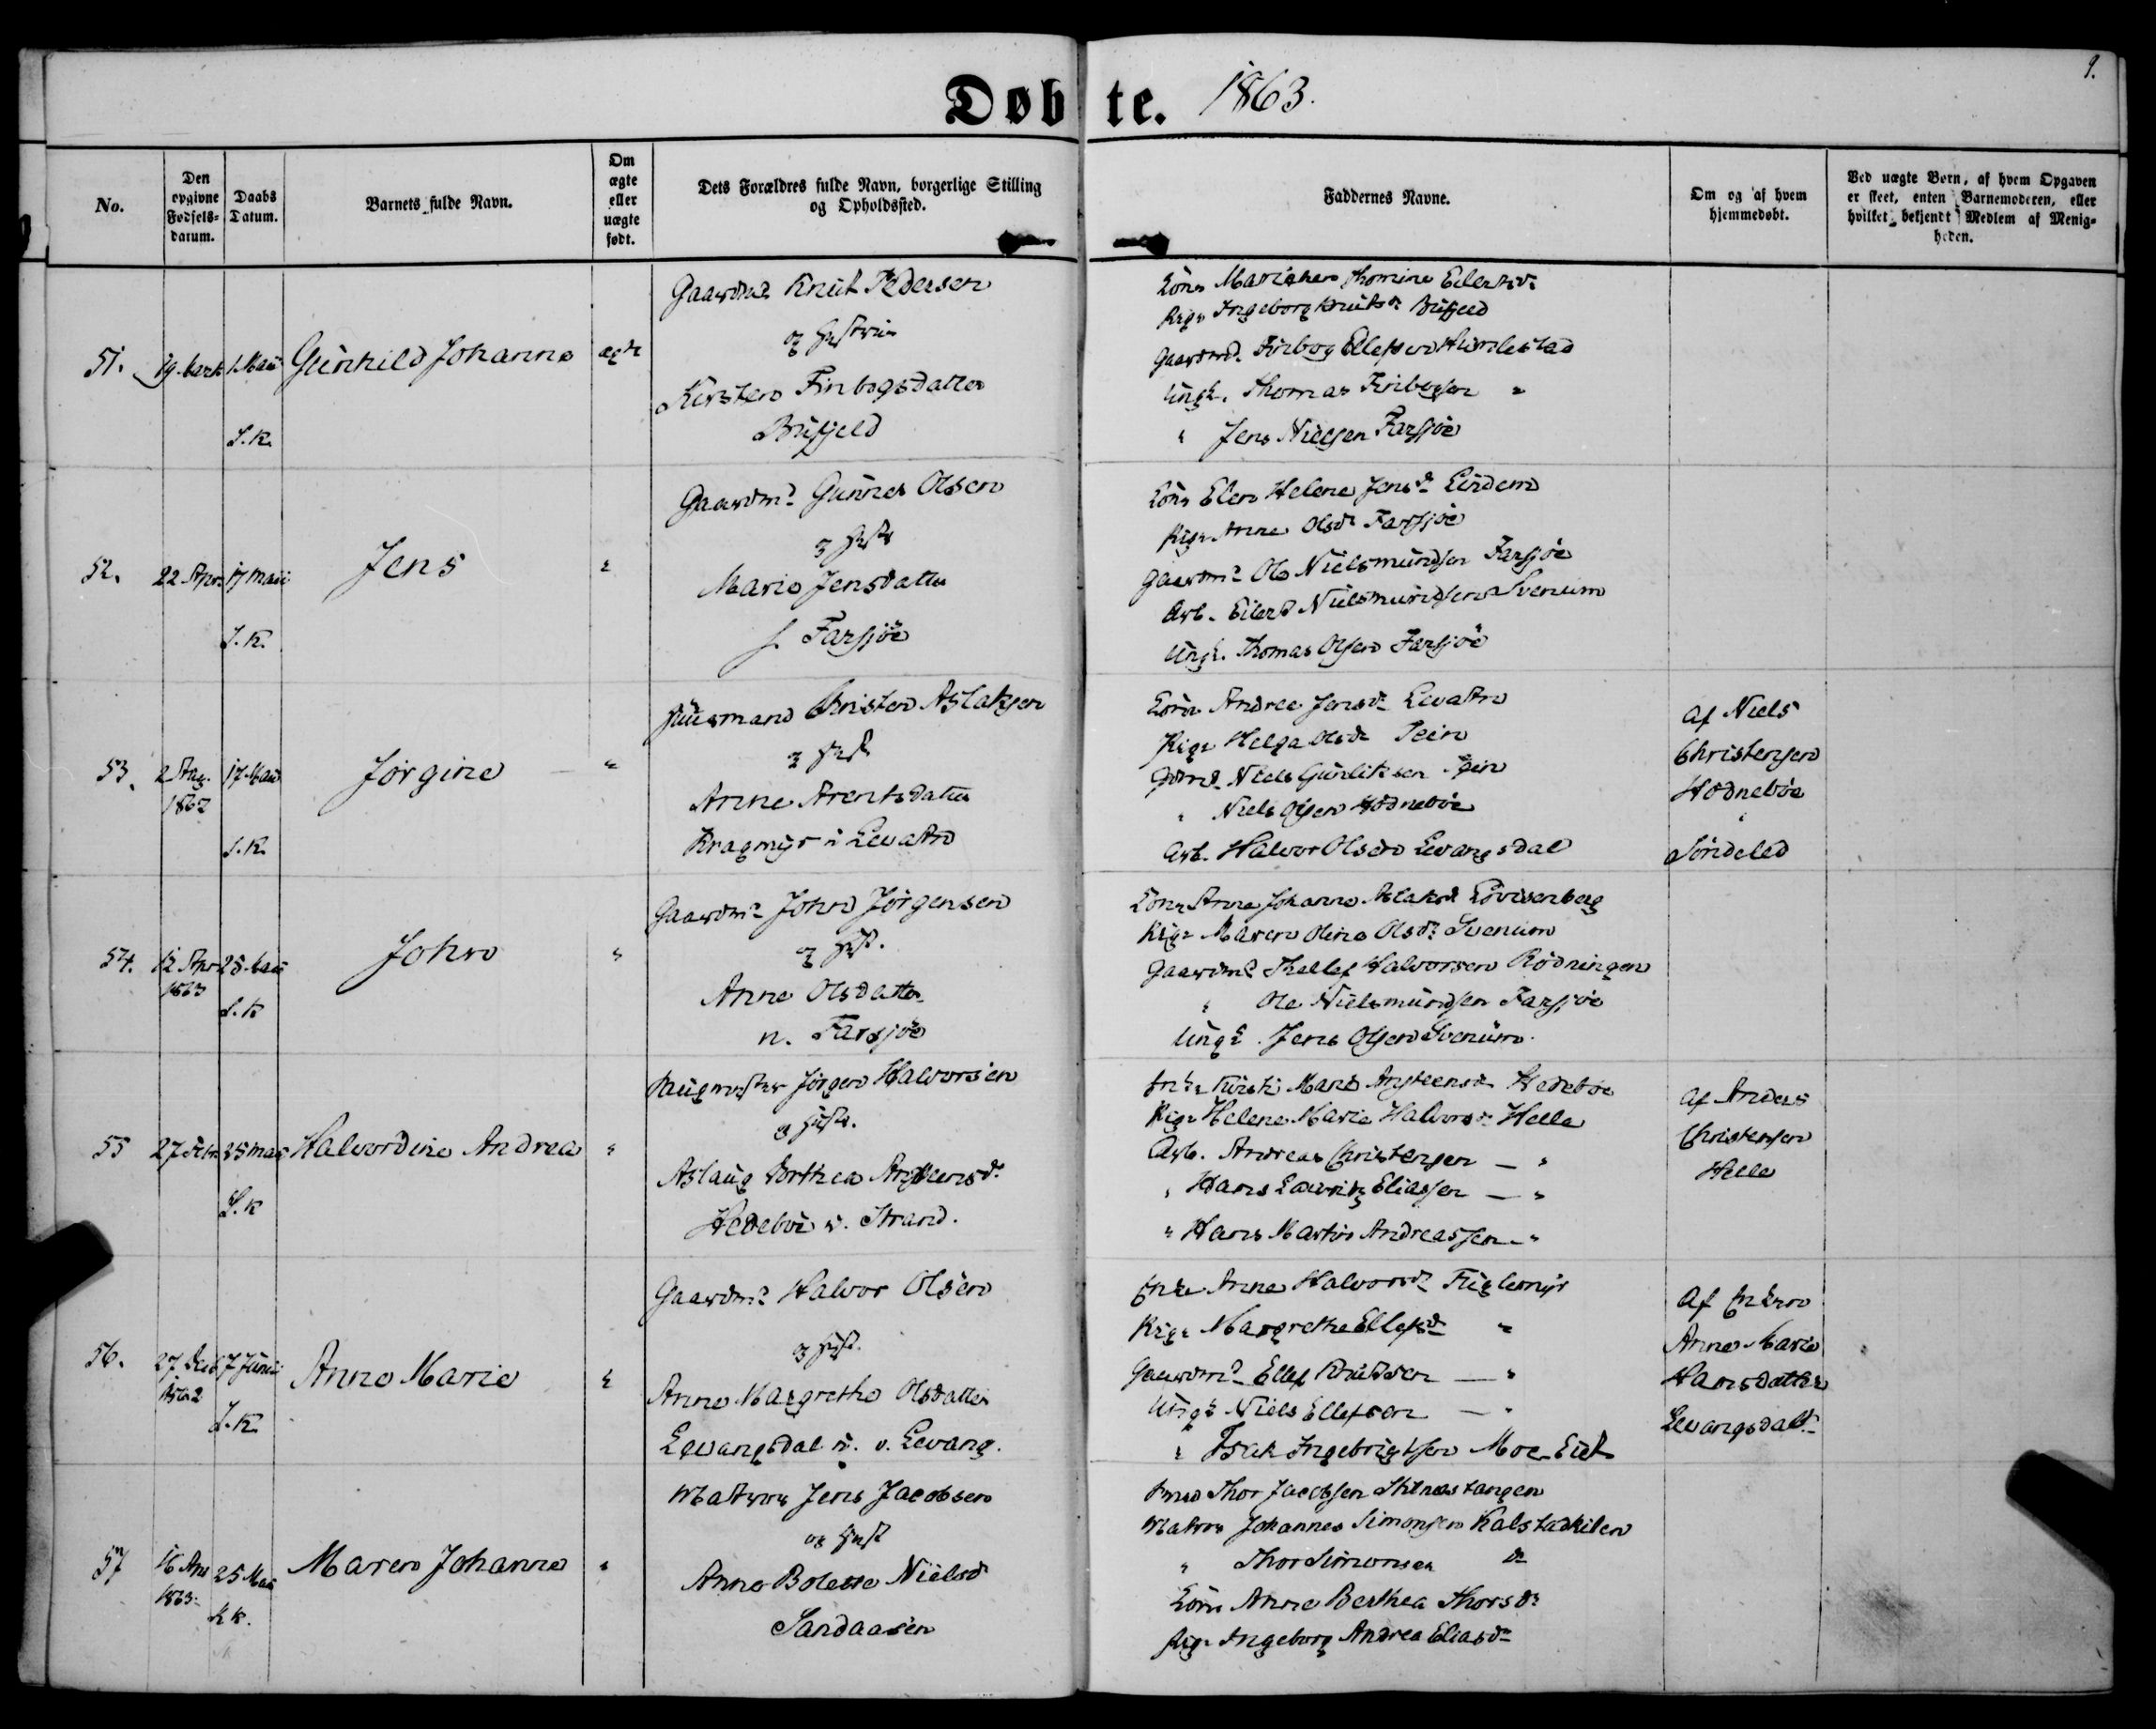 Døbte. 1863.
9.
No.
Den opgivne Fødsels-datum.
Daabs Datum.
Barnets fulde Navn.
Om ægte eller uægte født.
Dets Forældres fulde Navn, borgerlige Stilling og Opholdssted.
Faddernes Navne.
Om og af hvem hjemmedøbt.
Ved uægte Børn, af hvem Opgaven er skeet, enten Barnemoderen, eller hvilket bekjendt Medlem af Menig-heden.
51. 19. 1. Maii Gunhild Johanne ægte
S. K.
Gaardmd Knut Pedersen
og Hustrue
Kirsten Finbogsdatter
Busjeld
Kone Thomine Eilertsdr
Pige Ingeborg Knutsdr Busjeld
Gaardmd. Finbog Ellefsen Himlestad
Ungk. Thomas Finbogsen "
" Jens Nielsen Farsjøe
52. 22 Apr 17 Maii Jens "
S. K.
Gaardmd Gunner Olsen
og Hustr
Marie Jensdatter
s. Farsjøe
Kone Elen Helene Jensdr Lindem
Pige Anne Olsdr Farsjøe
Gaardmd Ole Nielsmundsen Farsjøe
Arb. Eilert Nielsmundsen Svenum
Ungk. Thomas Olsen Farsjøe
53. 2 Aug. 1862 17 Maii Jørgine "
S. K.
Huusmand Christen Aslaksen
og Hust
Anne Arentsdatter
Kragmyr u Levastr
Kone Andrea Jensdr Levastr
Pige Helga Olsdr
Gdmd. Niels Gunleksen
" Niels Olsen Hødnebøe
Arb. Halvor Olsen Levangsdal
Af Niels
Christensen
Hødnebøe
Søndeled
54. 12 Apr 1863 25 Maii John "
S. K
Gaardmd John Jørgensen
og Hust.
Anne Olsdatter
n. Farsjøe
Kone Anne Johanne Aslaksdr Lovisenberg
Pige Maren Oline Olsdr Svenum
Gaardmd Thellef Halvorsen Rødningen
" Ole Nielsmundsen Farsjøe
Ungk. Jens Olsen Svenum.
55 27 Febr 25 Maii Halvordine Andrea "
S. K
Jørgen Halvorsen
og Hustr.
Aslaug Dorthea
Hødebøe v. Strand.
Marie Hødebøe
Pige Helene Marie Halvorsdr Helle
Arb. Andreas Christensen — "
" Hans Lauritz Eliassen — "
" Hans Martin Andreassen — "
Af Anders
Christensen
Helle
56. 27 Decb 1862 7 Junii Anne Marie "
S. K.
Gaardmd Halvor Olsen
og Hust.
Anne Margrethe Olsdatter
Levangsdal v. Levang.
Enke Anne Halvorsdr Fuglemyr
Pige Margrethe Ellefsdr "
Gaardmd Ellef Knudsen — "
Ungk Niels Ellefsen — "
" Isak Ingebrigtsen Moe Eid
Af Enken
Anne Marie
Hansdatter
Levangsdal
57 16 Apr 1863 25 Maii Maren Johanne "
K K.
Matros Jens Jacobsen
og Hust
Anne Bolette Nielsd
Sandaasen
Thor Jacobsen Stilnæstangen
Matros Johannes Simonsen Kalstadkilen
" Thor Simonsen do
Kone Anne Berthea Thorsdr
Pige Ingeborg Andrea Eliasdr